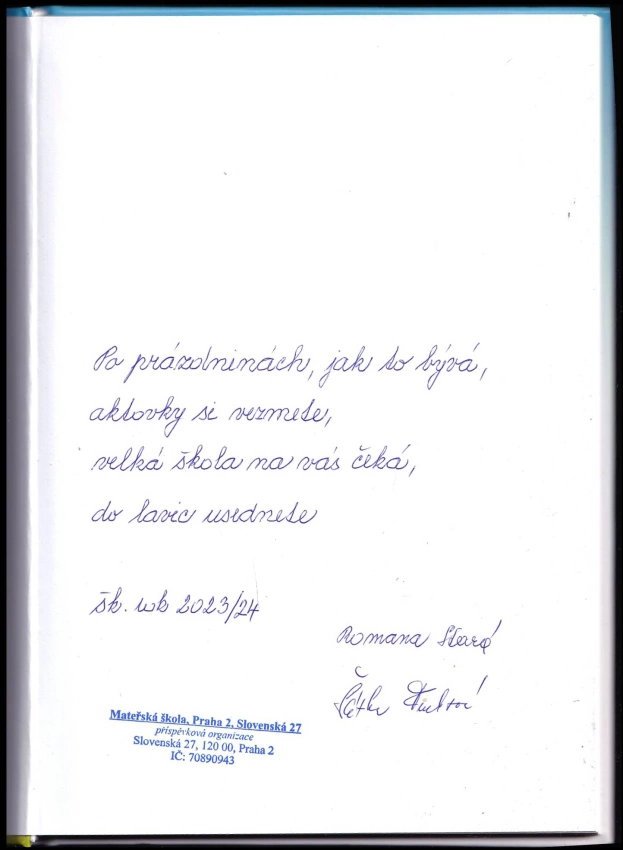 Po prázdninách, jak to bývá,
aktovky si vezmete,
velká škola na vás čeká,
do lavic usednete
šk. rok 2023/24
Romana Stará
Mateřská škola, Praha 2, Slovenská 27
příspěvková organizace
Slovenská 27, 120 00, Praha 2
IČ: 70890943